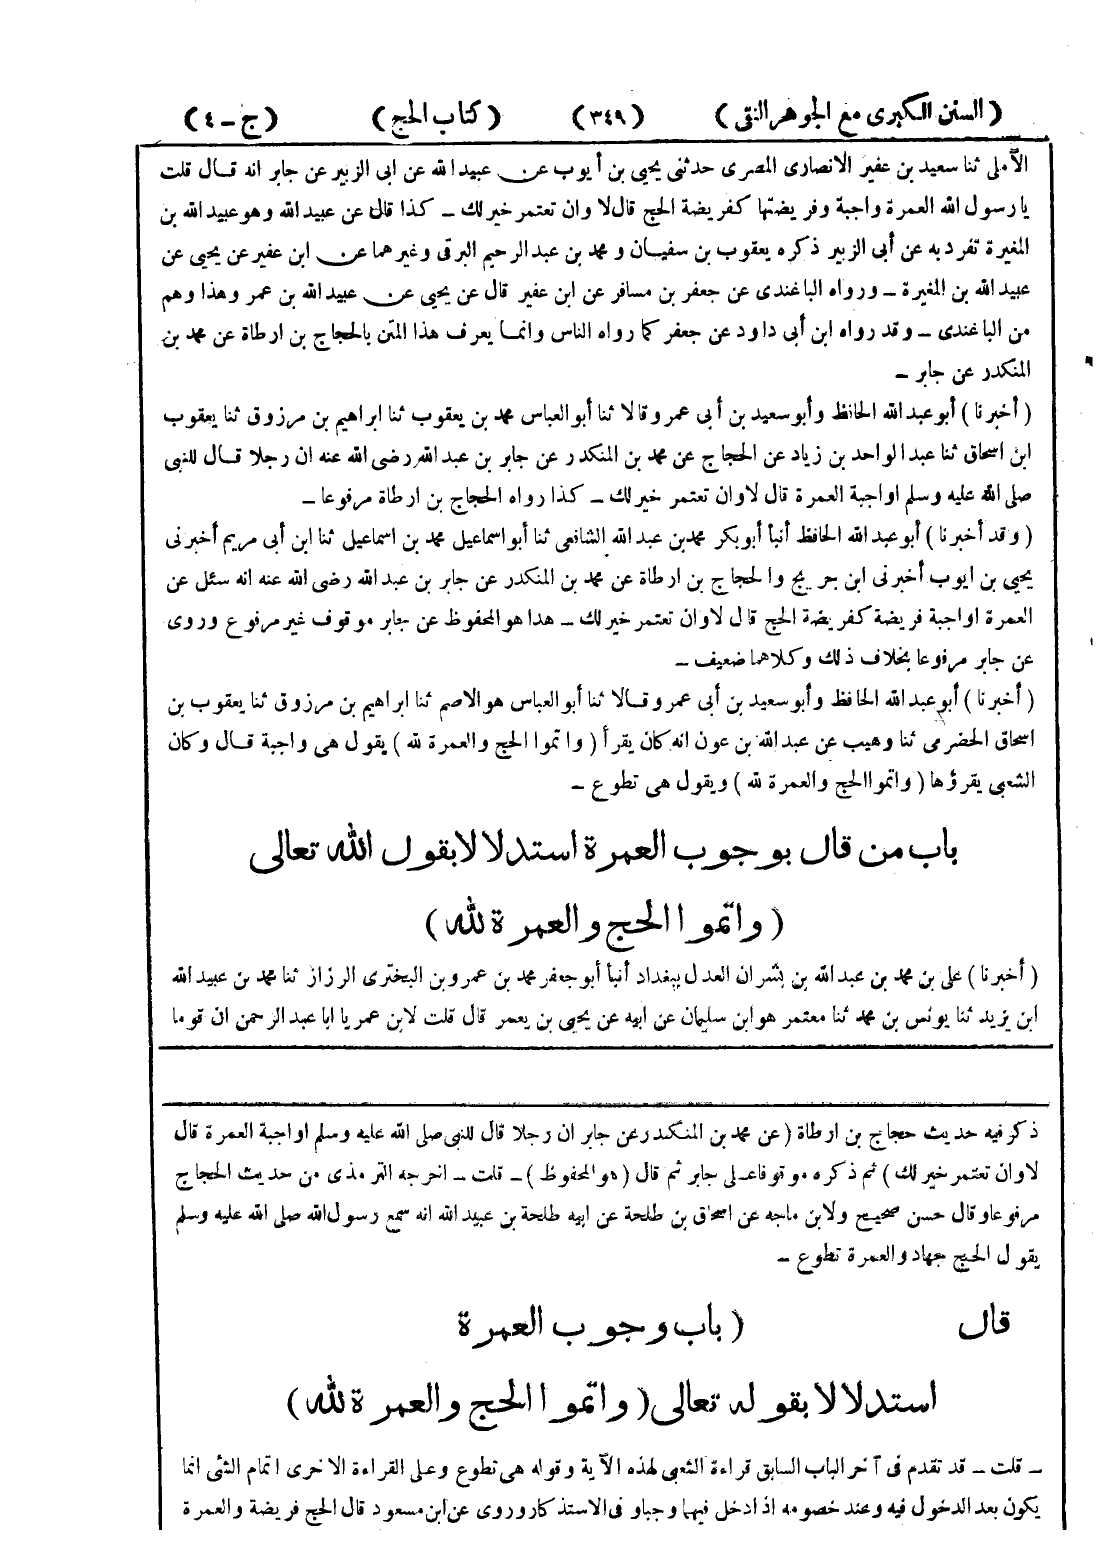 (السنن الكبرى مع الجوهر النقى) (٣٤٩) (كتاب الحج) (ج – ٤)
الآملى ثنا سعيد بن عفير الانصارى المصرى حدثنى يحيى بن أيوب عن عبيد الله عن ابى الزبير عن جابر انه قال قلت
يا رسول الله العمرة واجبة وفريضتها كفريضة الحج قال لا وان تعتمر خير لك – كذا قال عن عبيد الله وهو عبيد الله بن
المغيرة تفرد به عن أبى الزبير ذكره يعقوب بن سفيان و محمد بن عبد الرحيم البرقى وغيرهما عن ابن عفير عن يحيى عن
عبيد الله بن المغيرة – ورواه الباغندى عن جعفر بن مسافر عن ابن عفير قال عن يحيى عن عبيد الله بن عمر وهذا وهم
من الباغندى – وقد رواه ابن أبى داود عن جعفر كما رواه الناس وانما يعرف هذا المتن بالحجاج بن ارطاة عن محمد بن
المنكدر عن جابر –
(أخبرنا) أبو عبد الله الحافظ وأبو سعيد بن أبى عمرو قالا ثنا أبو العباس محمد بن يعقوب ثنا ابراهيم بن مرزوق ثنا يعقوب
ابن اسحاق ثنا عبد الواحد بن زياد عن الحجاج عن محمد بن المنكدر عن جابر بن عبد الله رضى الله عنه ان رجلا قال للنبى
صلى الله عليه وسلم اواجبة العمرة قال لا وان تعتمر خير لك – كذا رواه الحجاج بن ارطاة مرفوعا –
(وقد أخبرنا) أبو عبد الله الحافظ أنبأ أبو بكر محمد بن عبد الله الشافعى ثنا أبو اسماعيل محمد بن اسماعيل ثنا ابن أبى مريم أخبرنى
يحيى بن ايوب أخبرنى ابن جريج والحجاج بن ارطاة عن محمد بن المنكدر عن جابر بن عبد الله رضى الله عنه انه سئل عن
العمرة اواجبة فريضة كفريضة الحج قال لا وان تعتمر خير لك – هذا هو المحفوظ عن جابر موقوف غير مرفوع وروى
عن جابر مرفوعا بخلاف ذلك وكلاهما ضعيف –
(أخبرنا) أبو عبد الله الحافظ وأبو سعيد بن أبى عمرو قالا ثنا أبو العباس هو الاصم ثنا ابراهيم بن مرزوق ثنا يعقوب بن
اسحاق الحضرمى ثنا وهيب عن عبد الله بن عون انه كان يقرأ (واتموا الحج والعمرة لله) يقول هى واجبة قال وكان
الشعبى يقرؤها (واتموا الحج والعمرة لله) ويقول هى تطوع –
باب من قال بوجوب العمرة استدلالا بقول الله تعالى
(واتموا الحج والعمرة لله)
(أخبرنا) على بن محمد بن عبد الله بن بشران العدل ببغداد أنبأ أبو جعفر محمد بن عمرو بن البخترى الرزاز ثنا محمد بن عبيد الله
ابن يزيد ثنا يونس بن محمد ثنا معتمر هو ابن سليمان عن ابيه عن يحيى بن يعمر قال قلت لابن عمر يا ابا عبد الرحمن ان قوما
ذكر فيه حديث حجاج بن ارطاة (عن محمد بن المنكدر عن جابر ان رجلا قال للنبى صلى الله عليه وسلم اواجبة العمرة قال
لا وان تعتمر خير لك) ثم ذكره موقوفا على جابر ثم قال (هو المحفوظ) – قلت – اخرجه الترمذى من حديث الحجاج
مرفوعا وقال حسن صحيح ولابن ماجه عن اسحاق بن طلحة عن ابيه طلحة بن عبيد الله انه سمع رسول الله صلى الله عليه وسلم
يقول الحج جهاد والعمرة تطوع –
قال (باب وجوب العمرة
استدلالا بقوله تعالى (واتموا الحج والعمرة لله)
– قلت – قد تقدم فى آخر الباب السابق قراءة الشعبى لهذه الآية وقوله هى تطوع وعلى القراءة الاخرى اتمام الشئ انما
يكون بعد الدخول فيه وعند خصومه اذ ادخل فيها وجبا وفى الاستذكار وروى عن ابن مسعود قال الحج فريضة والعمرة